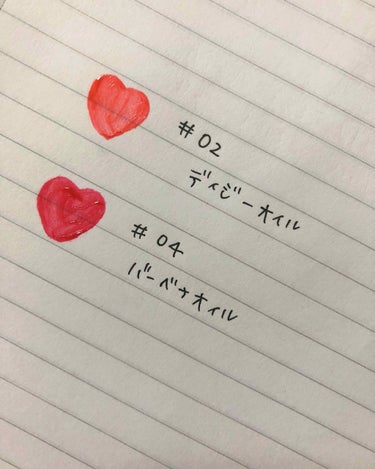 #02
ディジーオイル
#04
バーベナオイル